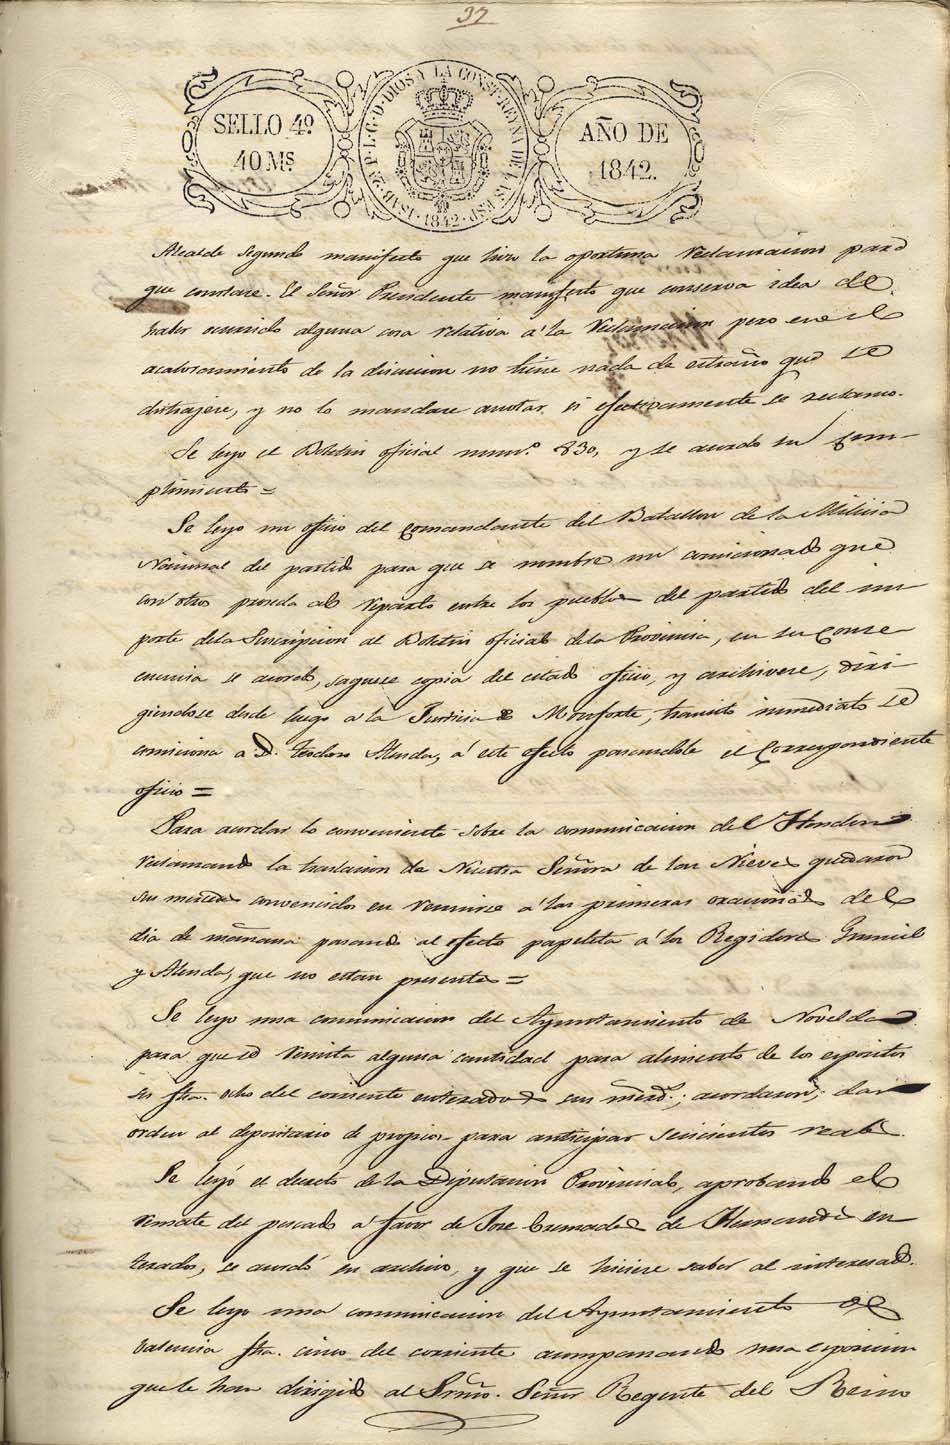 37
SELLO 4º.
40 Ms.
ISAB. 2ª P. L. G. D. DIOS Y LA CONST. REYNA DE LAS ESP. 1842
AÑO DE
1842.
Alcalde Segundo manifesto que hizo la oportuna reclamacion para
que constare. El Señor Presidente manifesto que conserva idea de
haber ocurrido alguna cosa relativa a la reclamacion pero en el
acaloramiento de la discucion no tiene nada de estraño que se
distrajere, y no lo mandare anotar si efectivamente se reclamo.
Se leyo el Boletin oficial num.º 830, y se acordo su cum-
plimiento =
Se leyo un oficio del Comandante del Batallon de la Milicia
Nacional del partido para que se nombre un comicionado que
con otros proceda al reparto entre los pueblos del partido del im
porte de la Suscripcion al Boletin oficial de la Provincia, en su Conse
cuencia se acordo, saquese copia del citado oficio, y archivese, diri
giendose desde luego a la Justicia de Monforte, transito inmediato se
comiciona a D. Teodoro Alenda, á este efecto pasandole el Correspondiente
oficio =
Para acordar lo conveniente sobre la comunicacion del Hondon
reclamando la traslacion de Nuestra Señora de las Nieves quedaron
sus mercedes convenidos en reunirse á las primeras oraciones del
dia de mañana pasando al efecto papeleta á los Regidores
y Alenda, que no estan presentes =
Se leyo una comunicacion del Ayuntamiento de Novelda
para que se remita alguna cantidad para alimento de los espositos
su fha. ocho del corriente enterados sus merd.s; acordaron, dar
orden al depositario de propios para anticipar seicientos reales.
Se leyó el decreto de la Diputacion Provincial, aprobando el
remate del pescado á favor de Jose Cremades de Hernandes en
terados, se acordó su archivo, y que se hiciese saber al interesado.
Se leyo una comunicacion del Ayuntamiento de
Valencia fha. cinco del corriente acompanando una esposicion
que le han dirigido al Srmo. Señor Regente del Reino